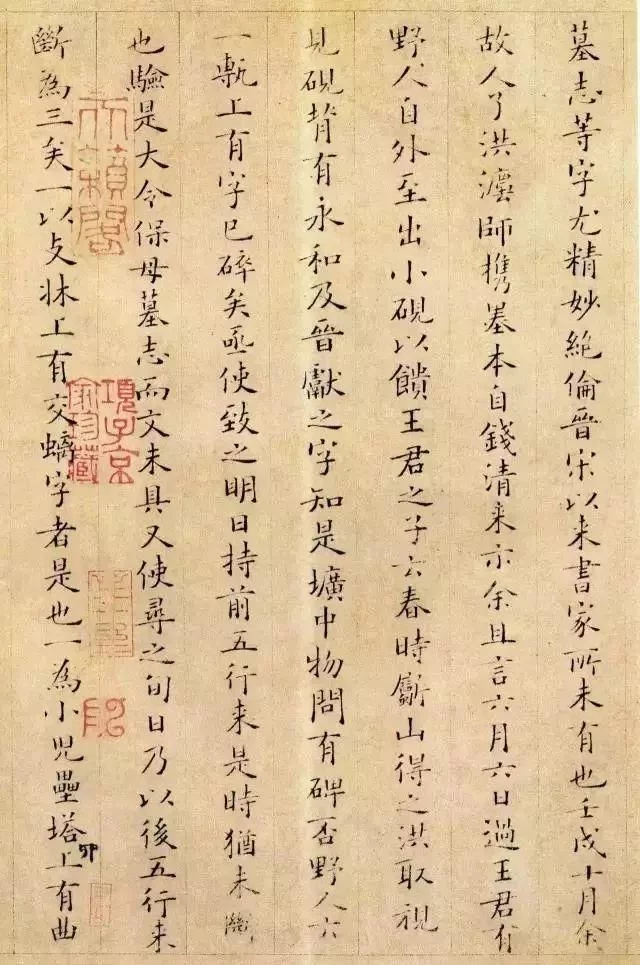 墓志等字尤精妙絶倫晉宋以来書家所未有也壬戌十月余
故人了洪瀍師携墨本自錢清来示余且言六月六日過王君有
野人自外至出小硯以饋王君之子云春時斸山得之洪取視
見硯背有永和及晉獻之字知是壙中物問有碑否野人云
一甎上有字已碎矣亟使致之明日持前五行来是時猶未斷
也驗是大令保母墓志而文未具又使尋之旬日乃以後五行来
斷為三矣一以支牀上有交螭字者是也一為小兒壘塔上有曲
天籟閣
項子京家珍藏